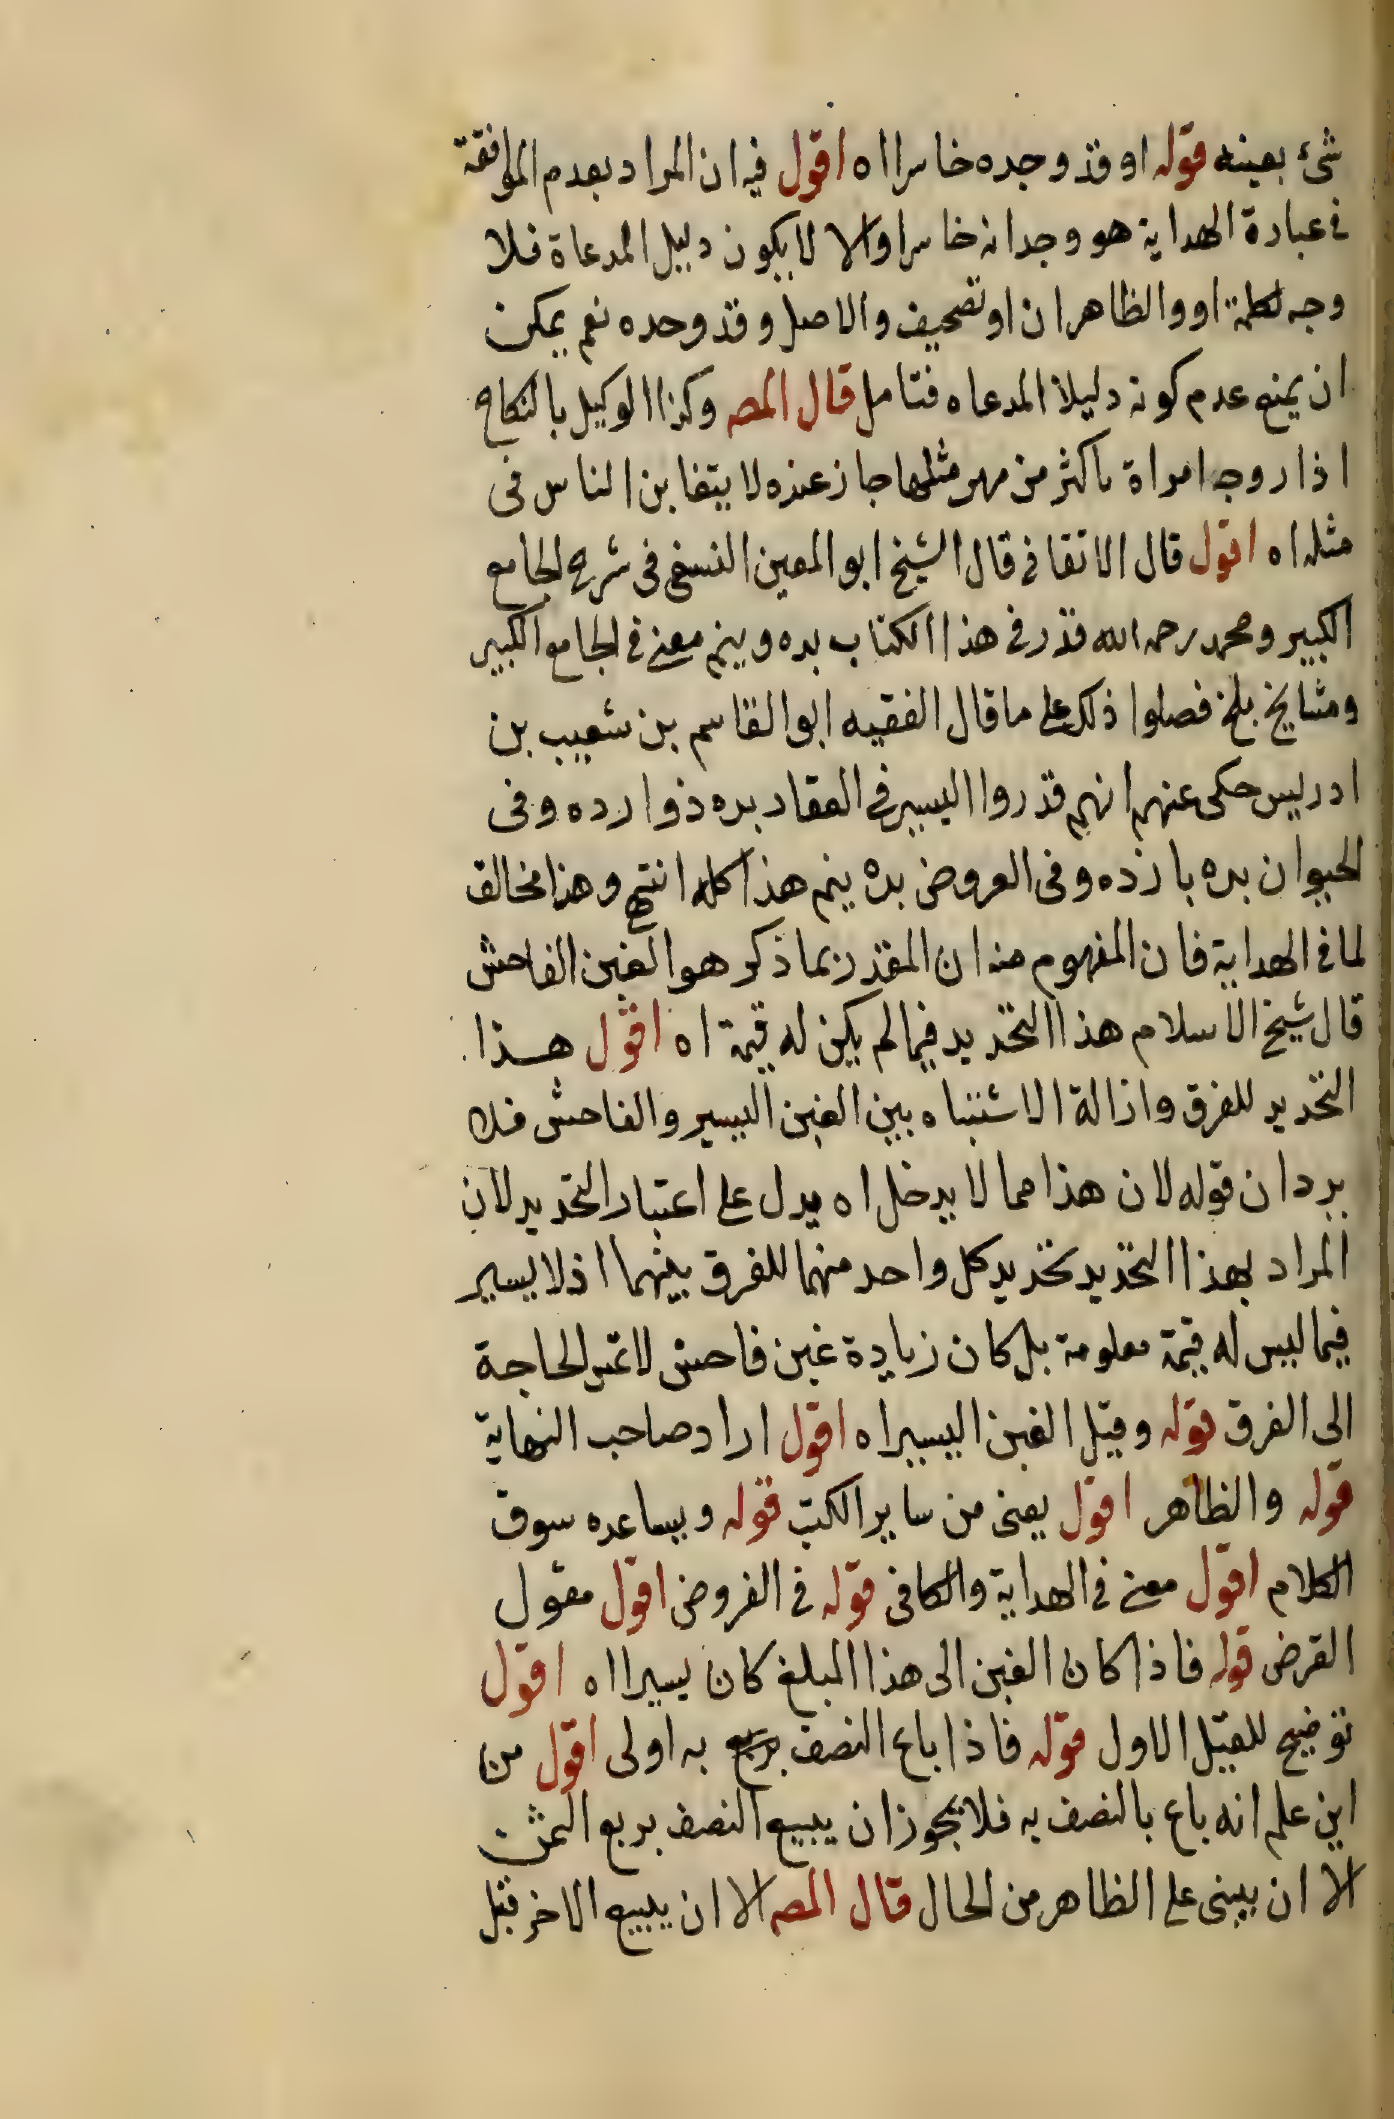 شئ بعينه قوله او وقد وجده خاسرا اه اقول فيه ان المراد بعدم الموافقة
في عبارة الهداية هو وجدانه خاسرا والا لا يكون دليل المدعاة فلا
وجه لكلمة او والظاهر ان او تصحيف والاصل وقد وجده نعم يمكن
ان يمنع عدم كونه دليلا المدعاه فتامل قال المص وكذا الوكيل بالنكاح
اذا زوجه امراة باكثر من مهر مثلها جاز عنده لا يتغابن الناس في
مثله اه اقول قال الاتقاني قال الشيخ ابو المعين النسفي في شرح الجامع
الكبير ومحمد رحمه الله قدر في هذا الكتاب بده وينم معنى في الجامع الكبير
ومشايخ بلخ فصلوا ذلك على ما قال الفقيه ابو القاسم بن شعيب بن
ادريس حكى عنهم انهم قدروا اليسير في العقار بده ذوازده وفي
الحيوان بده يازده وفي العروض بده ينم هذا كله انتهى وهذا مخالف
لما في الهداية فان المفهوم منه ان المقدر بما ذكر هو الغبن الفاحش
قال شيخ الاسلام هذا التحديد فيما لم يكن له قيمة اه اقول هذا
التحديد للفرق وازالة الاشتباه بين الغبن اليسير والفاحش فلا
يرد ان قوله لان هذا مما لا يدخل اه يدل على اعتبار التحديد لان
المراد بهذا التحديد تحديد كل واحد منهما للفرق بينهما اذ لا يسير
فيما ليس له قيمة معلومة بل كان زيادة غبن فاحش لا تمس الحاجة
الى الفرق قوله وقيل الغبن اليسير اه اقول اراد صاحب النهاية
قوله والظاهر اقول يعنى من ساير الكتب قوله ويساعده سوق
الكلام اقول معنى في الهداية والكافى قوله في الفروض اقول مقول
القرض قوله فاذا كان الغبن الى هذا المبلغ كان يسيرا اه اقول
توضيح للقيل الاول قوله فاذا باع النصف به اولى اقول من
اين علم انه باع بالنصف به فلا يجوز ان يبيع النصف بربع الثمن
الا ان يبنى على الظاهر من الحال قال المص الا ان يبيع الاخر قبل